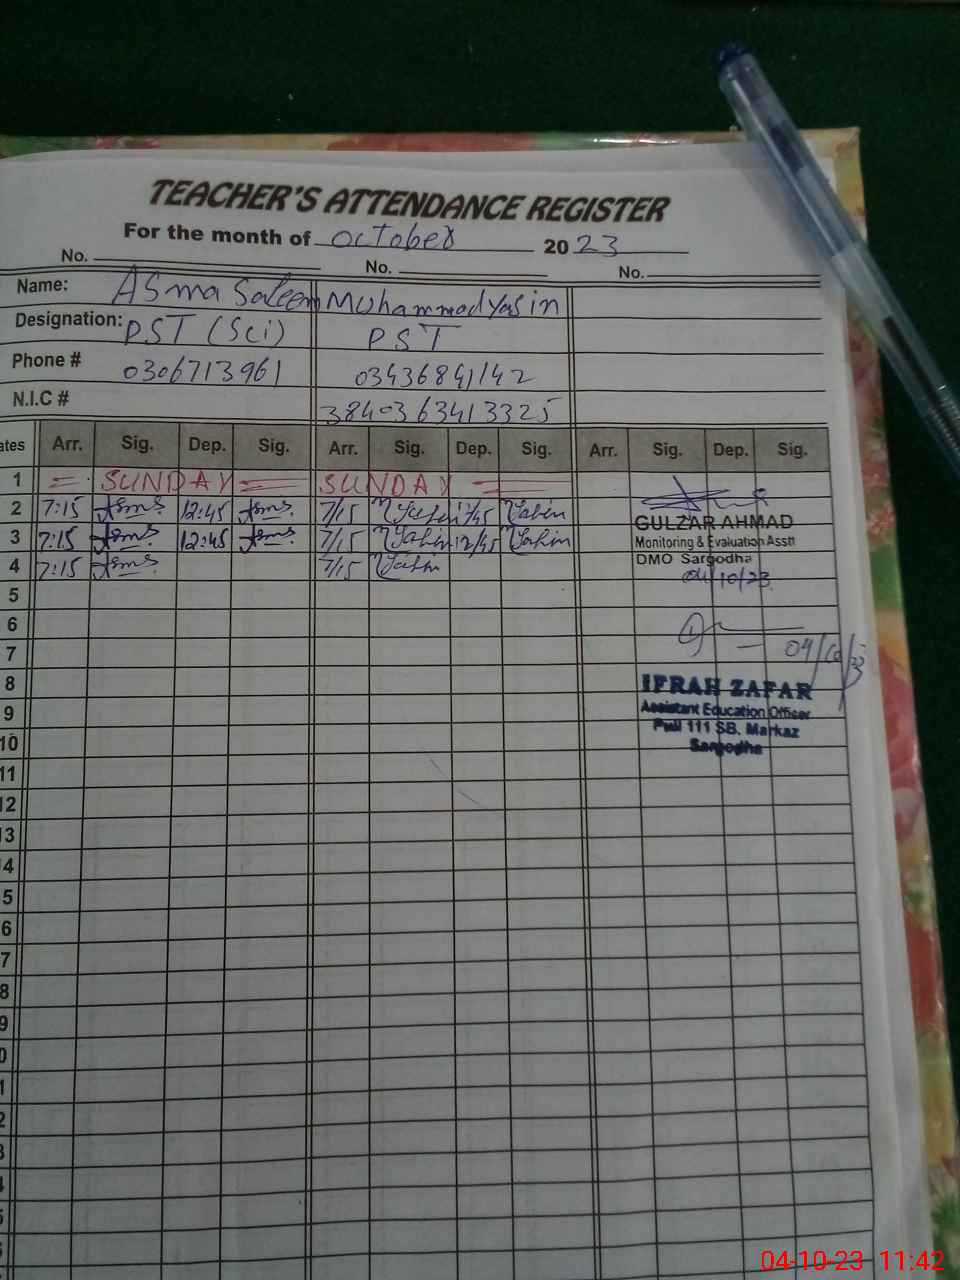 TEACHER'S ATTENDANCE REGISTER
For the month of October 2023
No. No. No.
Name: Asma Saleem Muhammad Yasin
Designation: PST (Sci) PST
Phone # 0306713961 03436841142
N.I.C # 3840363413325
ates Arr. Sig. Dep. Sig. Arr. Sig. Dep. Sig. Arr. Sig. Dep. Sig.
1 = SUNDAY = SUNDAY =
2 7:15 12:45 7/15 Yasin Yasin
3 7:15 12:45 7/15 Yasin 12/45 Yasin
4 7:15 7/15 Yasin
GULZAR AHMAD
Monitoring & Evaluation Asstt
DMO Sargodha
04/10/23
5
6
7
04/10/23
8
IFRAH ZAFAR
Assistant Education Officer
9
Pull 111 SB. Markaz
10
Sargodha
11
12
13
14
5
6
7
8
9
0
1
2
3
4
5
04-10-23 11:42